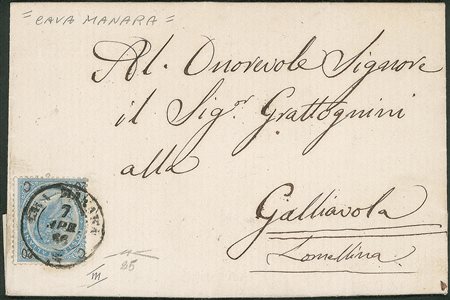 = CAVA MANARA =
Al. Onorevole Signore
il Sig.r Grattognini
alla
Galliavola
Lomellina
CAVA MANARA
7
APR
66
85